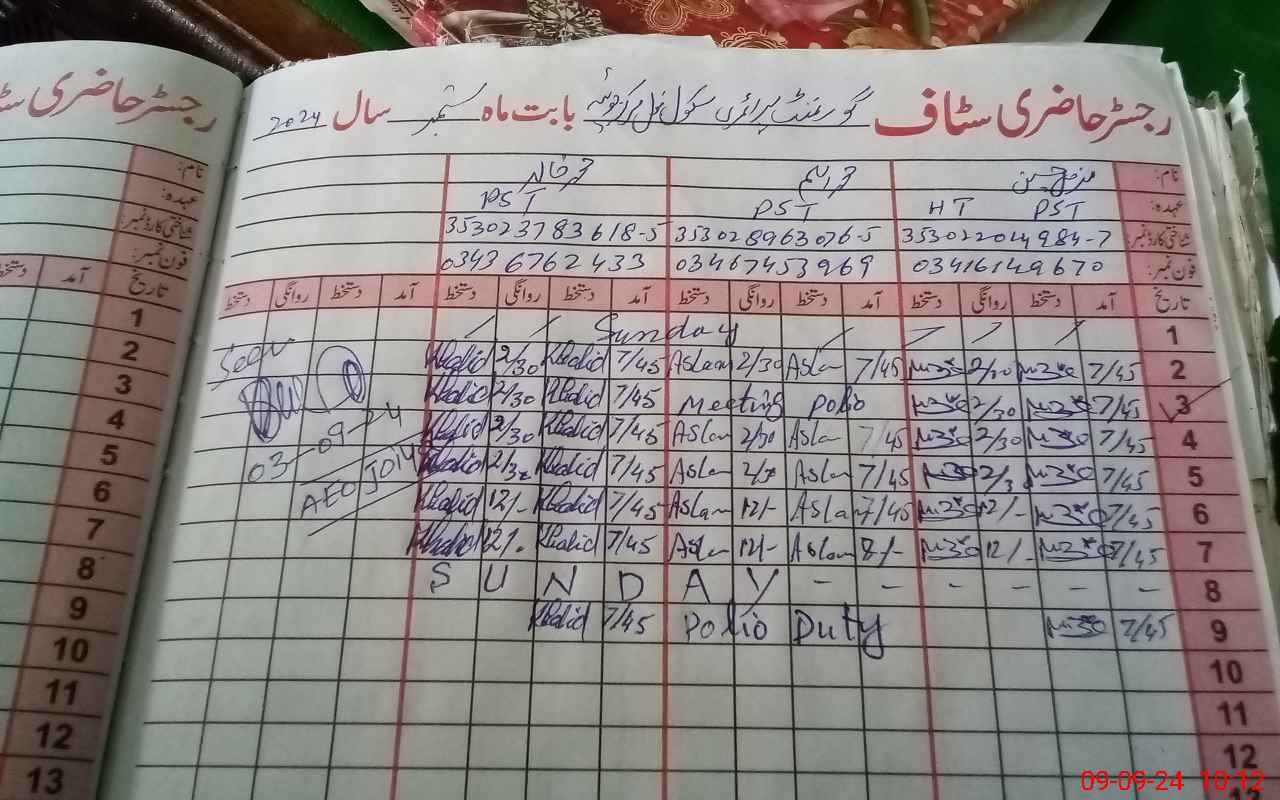 رجسٹر حاضری سٹاف گورنمنٹ پرائمری سکول بابت ماہ ستمبر سال 2024
نام: محمد اسلم محمد خالد
عہدہ: PST HT PST PST
شناختی کارڈ نمبر: 353022014984-7 353028963076-5 353023783618-5
فون نمبر: 03416149670 03467453969 03436762433
تاریخ آمد دستخط روانگی دستخط آمد دستخط روانگی دستخط آمد دستخط روانگی دستخط آمد دستخط روانگی دستخط
1 Sunday
2 7/45 2/30 7/45 Aslam 2/30 Aslam 7/45 Khalid 2/30 Khalid Seen
3 7/45 2/30 Meeting Polio 7/45 Khalid 2/30 Khalid
4 7/45 2/30 7/45 Aslam 2/30 Aslam 7/45 Khalid 2/30 Khalid 03-09-24
5 7/45 7/45 Aslam Aslam 7/45 Khalid Khalid AEO
6 7/45 12/- 7/45 Aslam 12/- Aslam 7/45 Khalid 12/- Khalid
7 12/- 8/- Aslam 12/- Aslam 7/45 Khalid 12/- Khalid
8 S U N D A Y - - - - - -
9 7/45 Polio Duty 7/45 Khalid
10
11
12
رجسٹر حاضری
نام:
عہدہ:
شناختی کارڈ نمبر:
فون نمبر:
تاریخ آمد
1
2
3
4
5
6
7
8
9
10
11
12
13
09-09-24 10:12